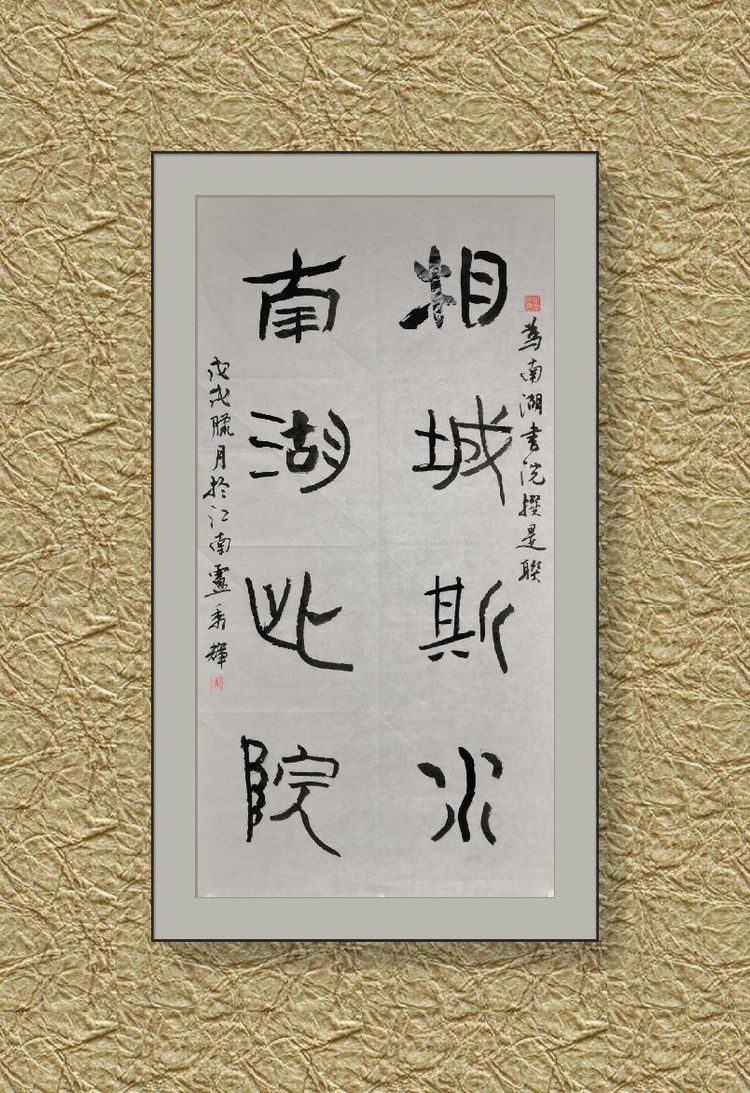 為南湖書院撰是聯
相城斯水
南湖此院
戊戌臘月於江南盧秀輝